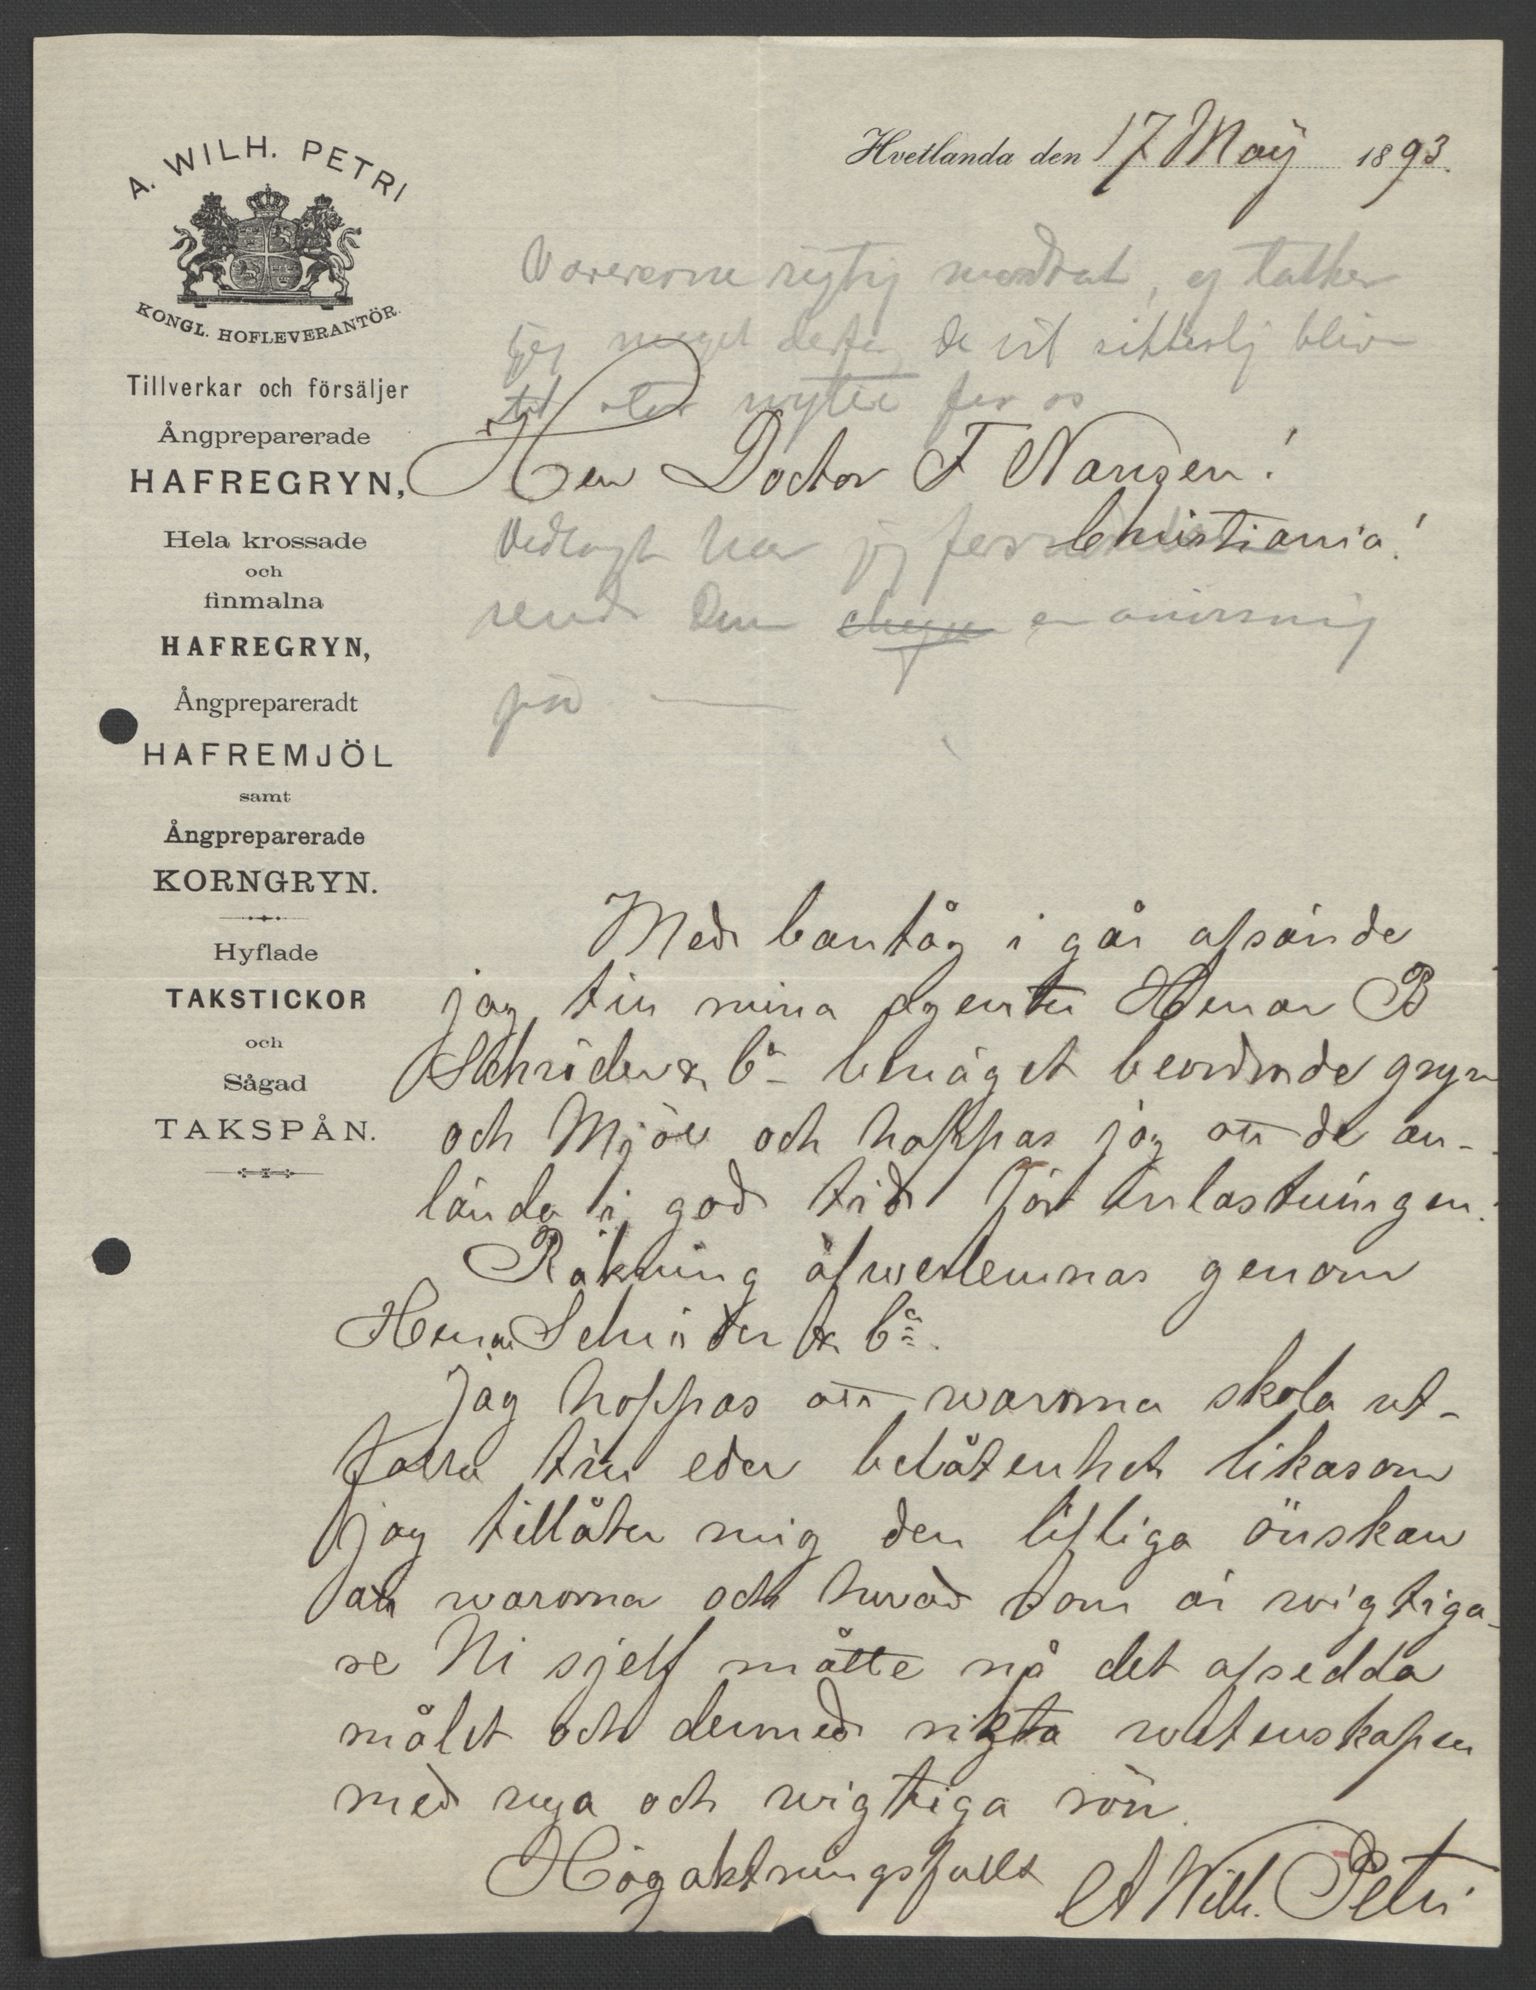 A. WILH. PETRI
KONGL. HOFLEVERANTÖR.
Tillverkar och försäljer
Ångpreparerade
HAFREGRYN,
Hela krossade
och
finmalna
HAFREGRYN,
Ångprepareradt
HAFREMJÖL
samt
Ångpreparerade
KORNGRYN.
Hyflade
TAKSTICKOR
och
Sågad
TAKSPÅN.
Hvetlanda den 17 Maÿ 1893.
Varerne rigtig modtat, og takker
jeg meget derfor de vil sikkerlig blive
til stor nytte for os
Herr Doctor F Nansen!
Christiania!
Vedlagt har jeg
sende Dem en anvisning
på
Med bantåg i går afsände
jag till mina agenter Herrar B
Schröder & Co benäget beordrade gryn
och Mjöl och hoppas jag att de an-
lända i god tid för inlastningen.
Räkning öfwerlemnas genom
Herrar Schröder & Co.
Jag hoppas att warorna skola ut-
falla till eder belåtenhet likasom
jag tillåter mig den lifliga önskan
att warorna och hwad som är wigtiga-
re Ni sjelf måtte nå det afsedda
målet och dermed rikta wetenskapen
med nya och wigtiga rön.
Högaktningsfullt A Wilh. Petri